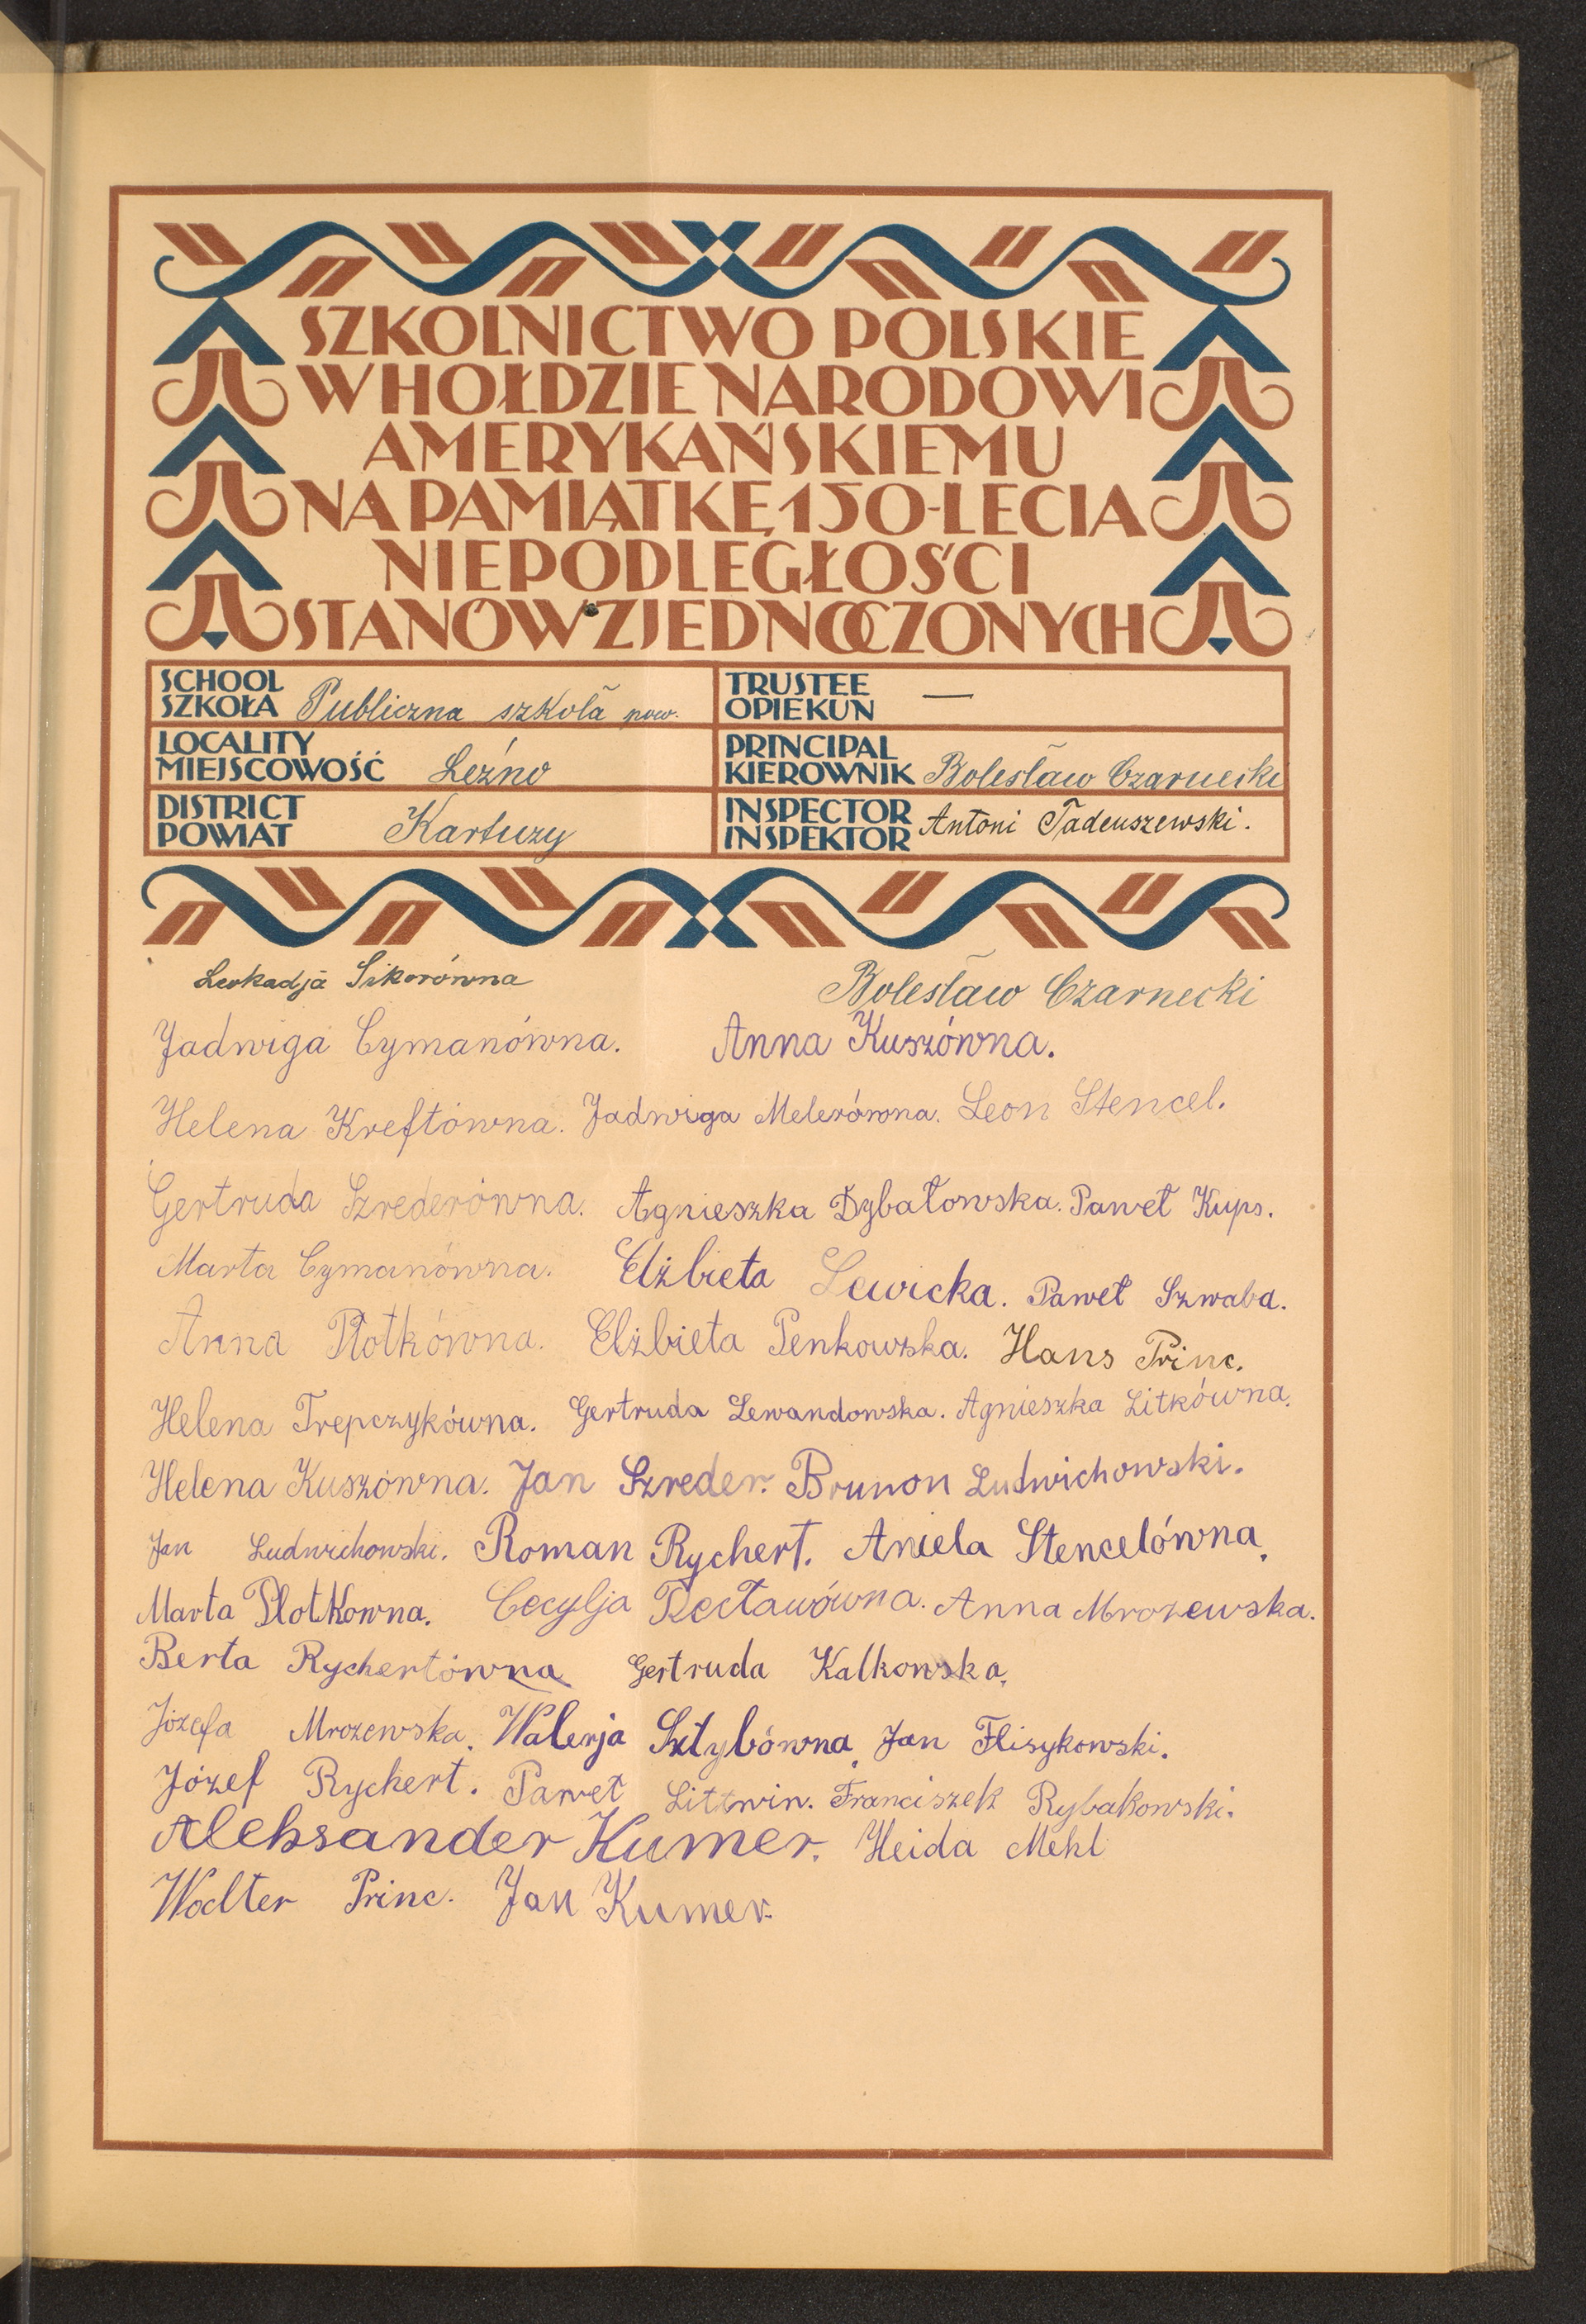 SZKOLNICTWO POLSKIE
W HOŁDZIE NARODOWI
AMERYKAŃSKIEMU
NA PAMIĄTKĘ 150-LECIA
NIEPODLEGŁOŚCI
STANÓW ZJEDNOCZONYCH
SCHOOL
SZKOŁA Publiczna szkoła pow.
TRUSTEE
OPIEKUN —
LOCALITY
MIEJSCOWOŚĆ Leźno
PRINCIPAL
KIEROWNIK Bolesław Czarnecki
DISTRICT
POWIAT Kartuzy
INSPECTOR
INSPEKTOR Antoni Tadeuszewski.
Leokadja Sikorówna Bolesław Czarnecki
Jadwiga Cymanówna. Anna Kuszówna.
Helena Kreftówna. Jadwiga Melerówna. Leon Stencel.
Gertruda Szrederówna. Agnieszka Dybałowska. Paweł Kups.
Marta Cymanówna. Elżbieta Lewicka. Paweł Szwaba.
Anna Płotkówna. Elżbieta Penkowska. Hans Princ.
Helena Trepczykówna. Gertruda Lewandowska. Agnieszka Litkówna.
Helena Kuszówna. Jan Szreder. Brunon Ludwichowski.
Jan Ludwichowski. Roman Rychert. Aniela Stencelówna.
Marta Plotkowna. Cecylja Recławówna. Anna Mrozewska.
Berta Rychertówna Gertruda Kalkowska.
Józefa Mrozewska. Walerja Sztybówna. Jan Flisykowski.
Józef Rychert. Paweł Littwin. Franciszek Rybakowski.
Aleksander Kumer. Heida Mehl
Walter Princ. Jan Kumer.